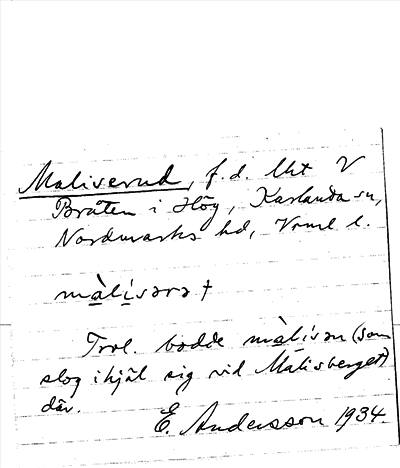 Maliserud, f.d. lht V
Bråten i Hög, Karlanda sn,
Nordmarks hd, Vrml l.
màlisərə +
Trol. bodde màlisən (som
slog ihjäl sig vid Målisberget)
där.
E. Andersson 1934.